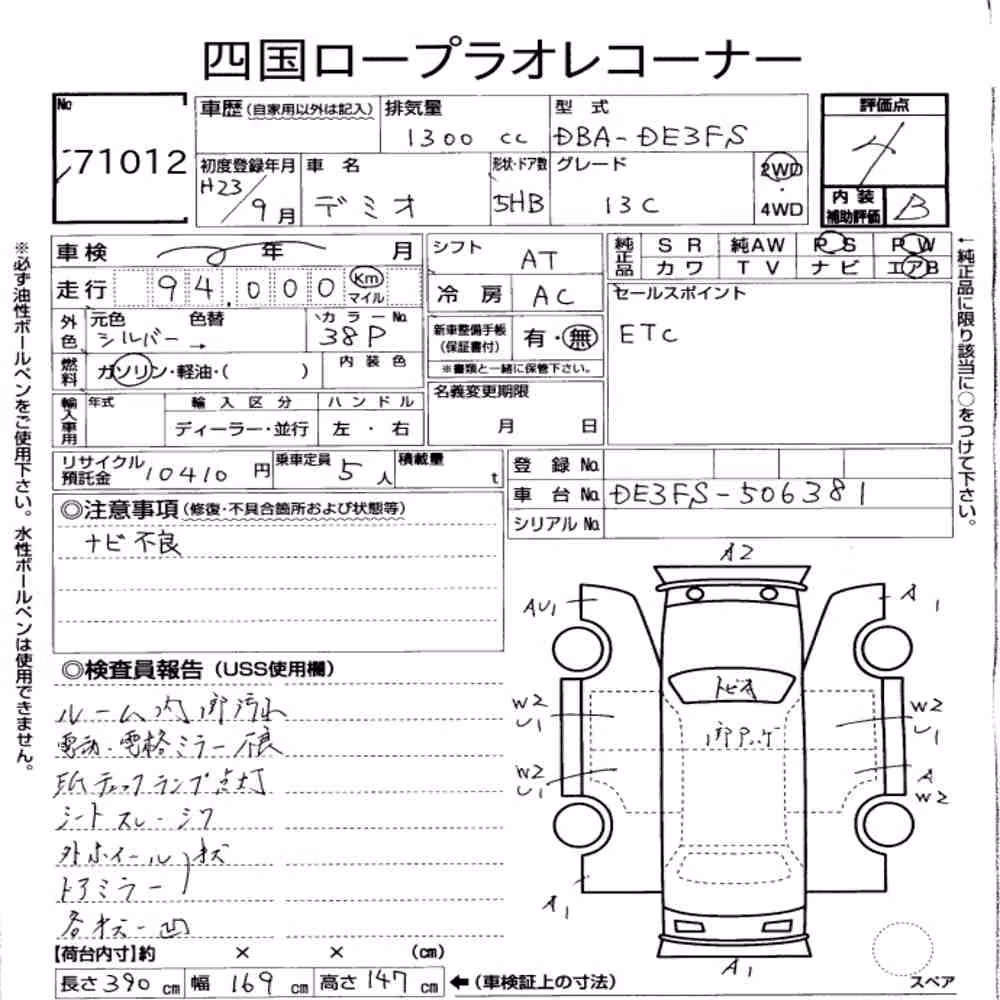 四国ロープラオレコーナー
No
71012
車歴(自家用以外は記入)
排気量
1300 cc
型式
DBA-DE3FS
評価点
4
初度登録年月
H23/9月
車名
デミオ
形状・ドア数
5HB
グレード
13C
2WD
・
4WD
内装
補助評価
B
車検 年 月
走行 94,000 Km
マイル
シフト
AT
冷房
AC
純正品
SR 純AW PS PW
カワ TV ナビ エアB
外色
元色 色替
シルバー →
カラーNo.
38P
新車整備手帳
(保証書付)
有・無
※書類と一緒に保管下さい。
セールスポイント
ETC
燃料
ガソリン・軽油・( )
内装色
輸入車用
年式
輸入区分
ディーラー・並行
ハンドル
左・右
名義変更期限
月 日
リサイクル
預託金
10410円
乗車定員
5人
積載量
t
登録No.
車台No. DE3FS-506381
シリアルNo.
◎注意事項(修復・不具合箇所および状態等)
ナビ不良
◎検査員報告(USS使用欄)
ルーム内 汚れ
電動・電格ミラー不良
チェックランプ点灯
シートスレ・シワ
ホイール
ドアミラー
各 凹
【荷台内寸】約 × × (cm)
長さ390cm 幅169cm 高さ147cm ←(車検証上の寸法)
A2
AU1
A1
トビキ
W2
U1
W2
U1
W2
U1
A
W2
A1
A1
スペア
※必ず油性ボールペンをご使用下さい。水性ボールペンは使用できません。
←純正品に限り該当に○をつけて下さい。